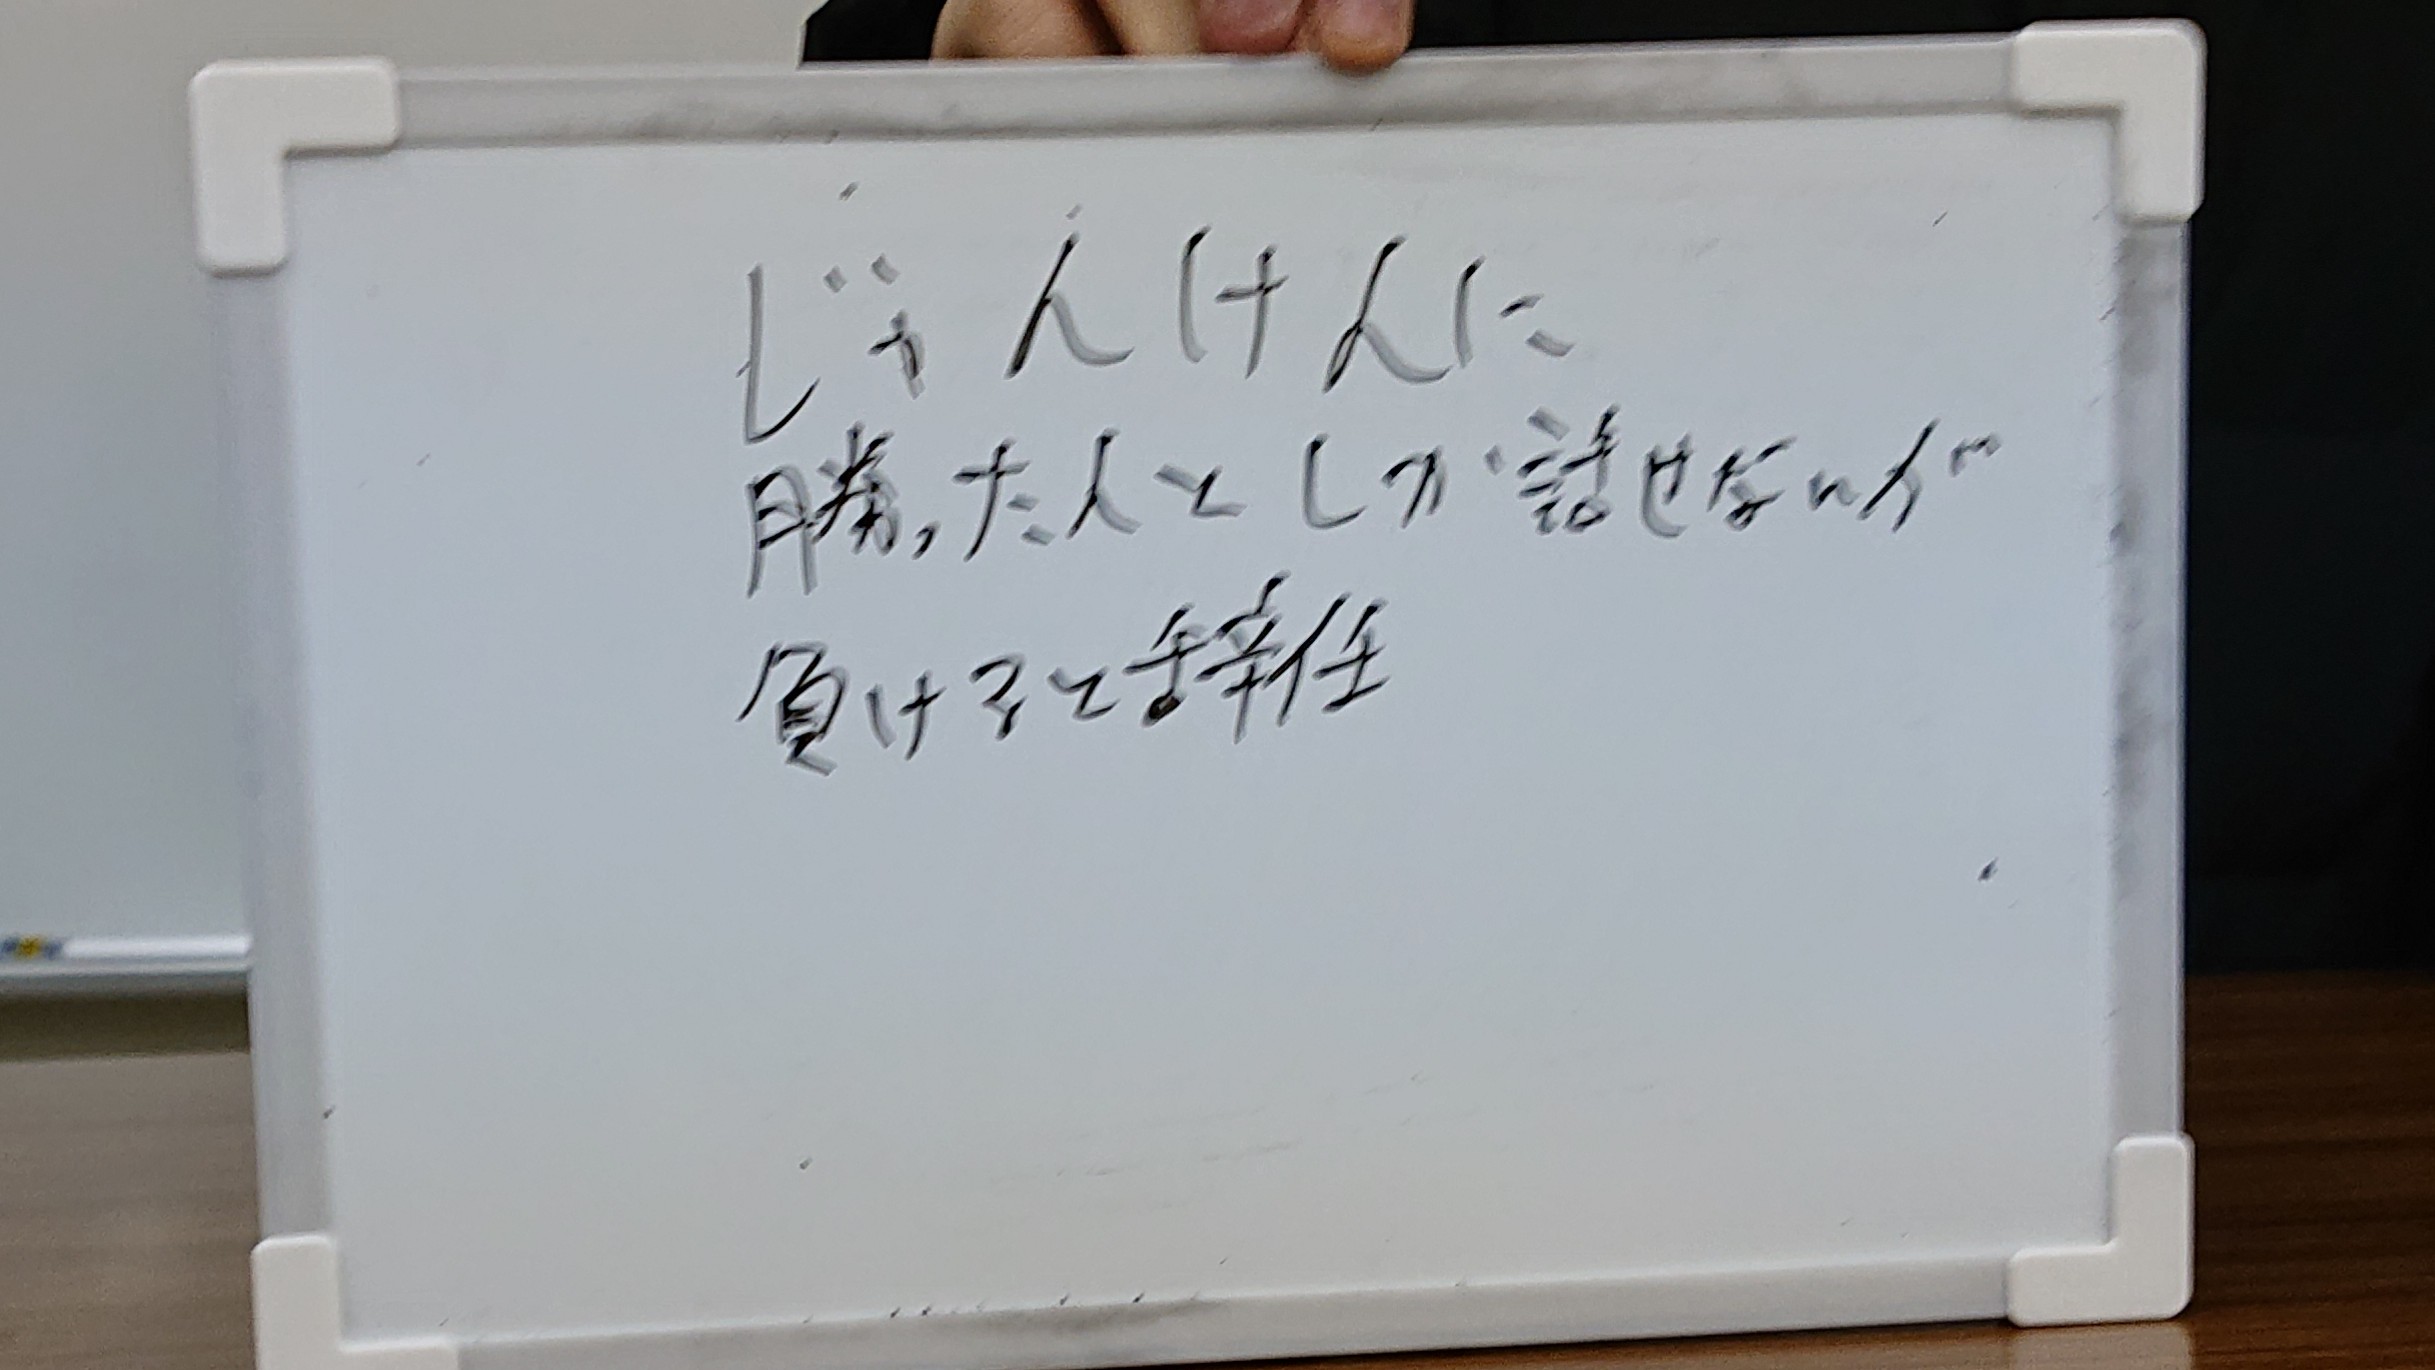 じゃんけんに
勝った人としか話せないが
負けると辞任